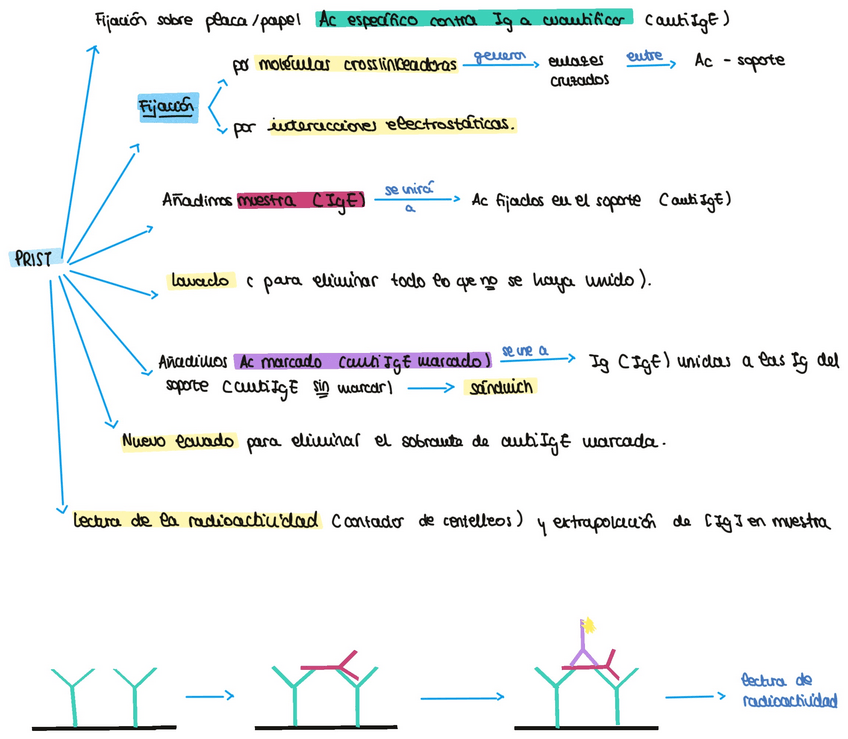 Fijación sobre placa/papel Ac específico contra Ig a cuantificar (antiIgE)
por moléculas crosslinkeadoras generan enlazes cruzados entre Ac - soporte
Fijación
por interacciones electrostáticas.
Añadimos muestra (IgE) se unirá a Ac fijados en el soporte (antiIgE)
PRIST
Lavado (para eliminar todo lo que no se haya unido).
Añadimos Ac marcado (antiIgE marcado) se une a Ig (IgE) unidas a las Ig del
soporte (antiIgE sin marcar) sándwich
Nuevo lavado para eliminar el sobrante de antiIgE marcada.
Lectura de la radioactividad (contador de centelleos) y extrapolación de [Ig] en muestra
lectura de
radioactividad